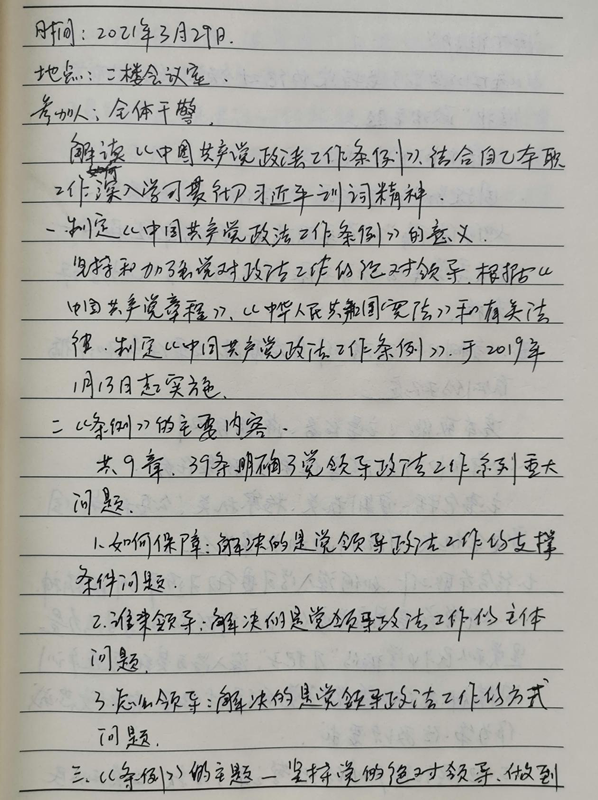 时间：2021年3月29日.
地点：二楼会议室.
参加人：全体干警.
解读《中国共产党政法工作条例》，结合自己本职
工作，如何深入学习贯彻习近平训词精神.
一.制定《中国共产党政法工作条例》的意义.
坚持和加强党对政法工作的绝对领导，根据《
中国共产党章程》、《中华人民共和国宪法》和有关法
律.制定《中国共产党政法工作条例》.于2019年
1月13日起实施.
二.《条例》的主要内容.
共9章、39条明确了党领导政法工作系列重大
问题.
1.如何保障：解决的是党领导政法工作的支撑
条件问题.
2.谁来领导：解决的是党领导政法工作的主体
问题.
3.怎么领导：解决的是党领导政法工作的方式
问题.
三.《条例》的主题—坚持党的绝对领导.做到